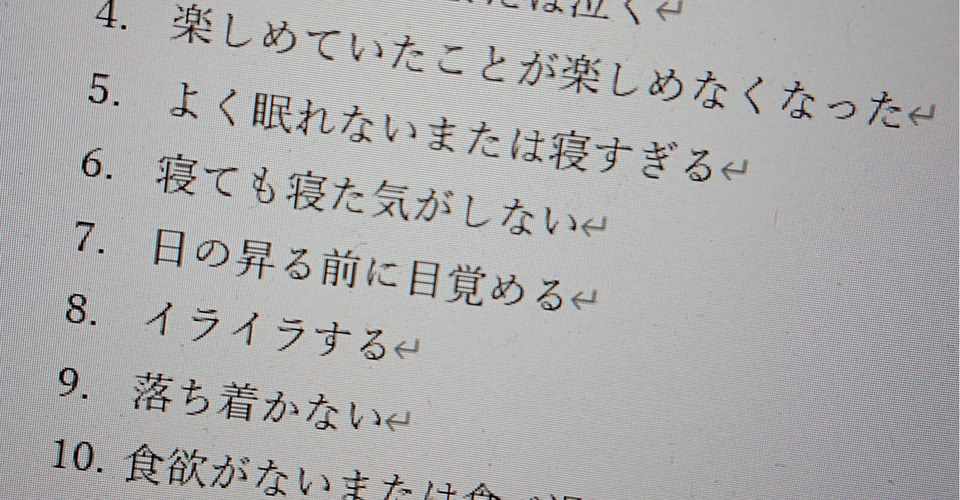 または泣く↵
4. 楽しめていたことが楽しめなくなった↵
5. よく眠れないまたは寝すぎる↵
6. 寝ても寝た気がしない↵
7. 日の昇る前に目覚める↵
8. イライラする↵
9. 落ち着かない↵
10. 食欲がないまたは食